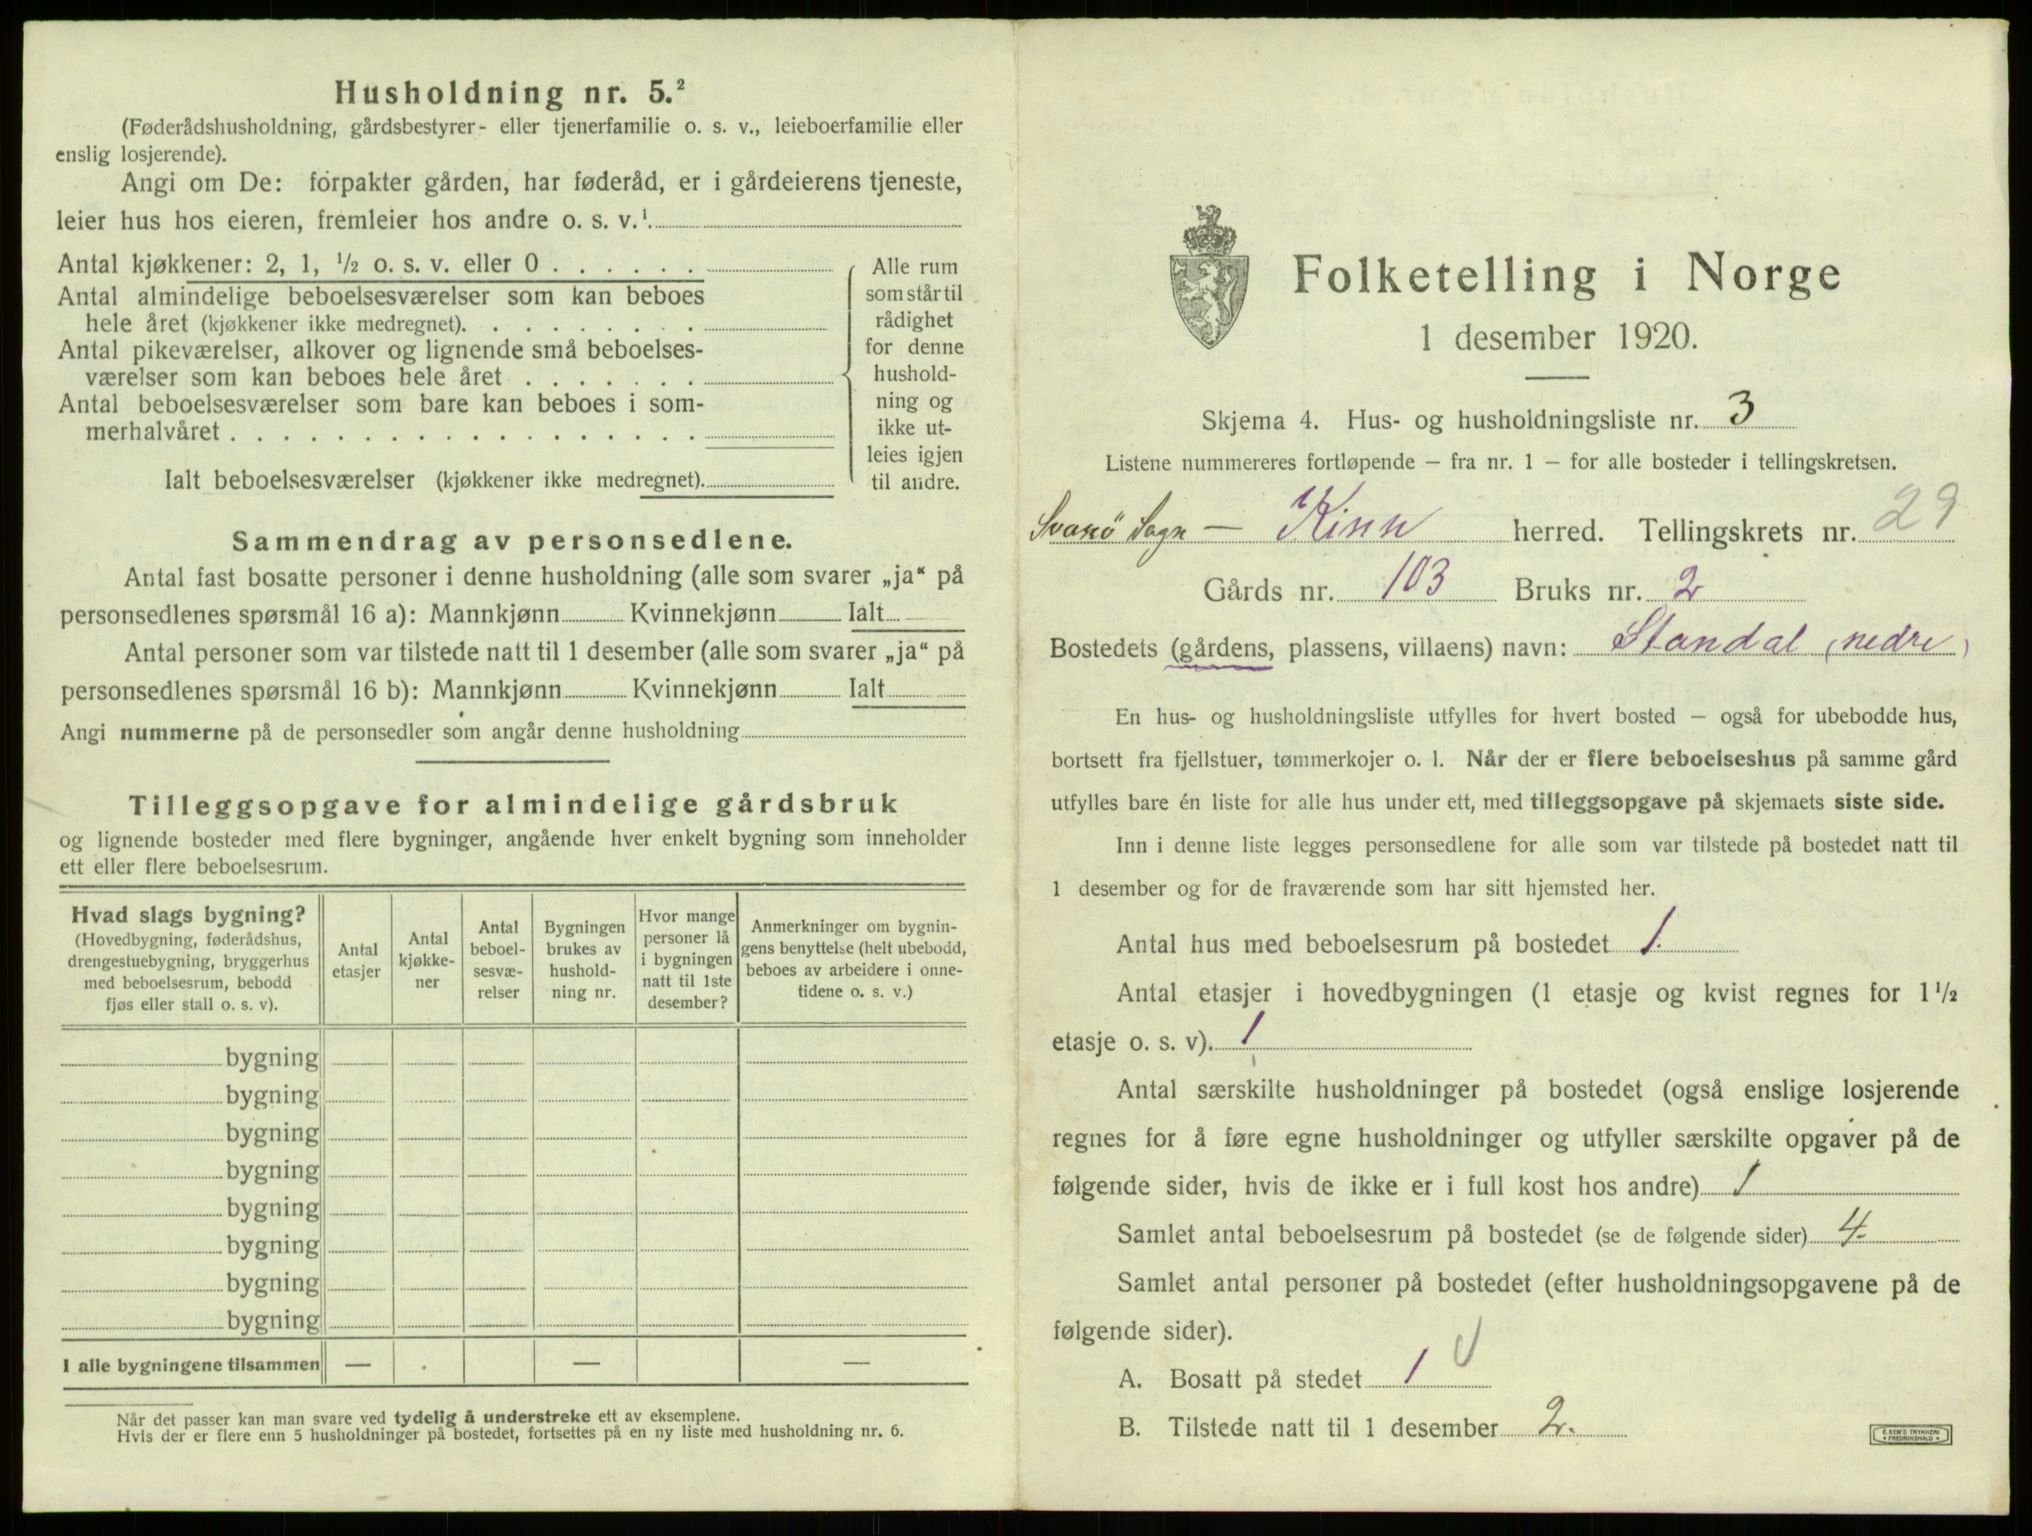 Husholdning nr. 5.²
(Føderådshusholdning, gårdsbestyrer- eller tjenerfamilie o. s. v., leieboerfamilie eller
enslig losjerende).
Angi om De: forpakter gården, har føderåd, er i gårdeierens tjeneste,
leier hus hos eieren, fremleier hos andre o. s. v.¹
Antal kjøkkener: 2, 1, ½ o. s. v. eller 0 . . . . . .
Antal almindelige beboelsesværelser som kan beboes
hele året (kjøkkener ikke medregnet). . . . . . . . .
Antal pikeværelser, alkover og lignende små beboelses-
værelser som kan beboes hele året . . . . . . .
Antal beboelsesværelser som bare kan beboes i som-
merhalvåret . . . . . . . . . . . . . . . . . .
Ialt beboelsesværelser (kjøkkener ikke medregnet).
Alle rum
som står til
rådighet
for denne
hushold-
ning og
ikke ut-
leies igjen
til andre.
Sammendrag av personsedlene.
Antal fast bosatte personer i denne husholdning (alle som svarer „ja“ på
personsedlenes spørsmål 16 a): Mannkjønn Kvinnekjønn Ialt
Antal personer som var tilstede natt til 1 desember (alle som svarer „ja“ på
personsedlenes spørsmål 16 b): Mannkjønn Kvinnekjønn Ialt
Angi nummerne på de personsedler som angår denne husholdning
Tilleggsopgave for almindelige gårdsbruk
og lignende bosteder med flere bygninger, angående hver enkelt bygning som inneholder
ett eller flere beboelsesrum.
Hvad slags bygning?
(Hovedbygning, føderådshus,
drengestuebygning, bryggerhus
med beboelsesrum, bebodd
fjøs eller stall o. s. v).
Antal
etasjer
Antal
kjøkke-
ner
Antal
beboel-
sesvæ-
relser
Bygningen
brukes av
hushold-
ning nr.
Hvor mange
personer lå
i bygningen
natt til 1ste
desember?
Anmerkninger om bygnin-
gens benyttelse (helt ubebodd,
beboes av arbeidere i onne-
tidene o. s. v.)
bygning
bygning
bygning
bygning
bygning
bygning
bygning
bygning
I alle bygningene tilsammen — . — —
Når det passer kan man svare ved tydelig å understreke ett av eksemplene.
Hvis der er flere enn 5 husholdninger på bostedet, fortsettes på en ny liste med husholdning nr. 6.
Folketelling i Norge
1 desember 1920.
Skjema 4. Hus- og husholdningsliste nr. 3
Listene nummereres fortløpende – fra nr. 1 – for alle bosteder i tellingskretsen.
Svanö Sogn – Kinn herred. Tellingskrets nr. 29
Gårds nr. 103 Bruks nr. 2
Bostedets (gårdens, plassens, villaens) navn: Standal (nedre)
En hus- og husholdningsliste utfylles for hvert bosted – også for ubebodde hus,
bortsett fra fjellstuer, tømmerkojer o. l. Når der er flere beboelseshus på samme gård
utfylles bare én liste for alle hus under ett, med tilleggsopgave på skjemaets siste side.
Inn i denne liste legges personsedlene for alle som var tilstede på bostedet natt til
1 desember og for de fraværende som har sitt hjemsted her.
Antal hus med beboelsesrum på bostedet 1.
Antal etasjer i hovedbygningen (1 etasje og kvist regnes for 1½
etasje o. s. v). 1
Antal særskilte husholdninger på bostedet (også enslige losjerende
regnes for å føre egne husholdninger og utfyller særskilte opgaver på de
følgende sider, hvis de ikke er i full kost hos andre) 1
Samlet antal beboelsesrum på bostedet (se de følgende sider) 4.
Samlet antal personer på bostedet (efter husholdningsopgavene på de
følgende sider).
A. Bosatt på stedet 1
B. Tilstede natt til 1 desember 2.
E. SEM'S TRYKKERI
FREDRIKSHALD